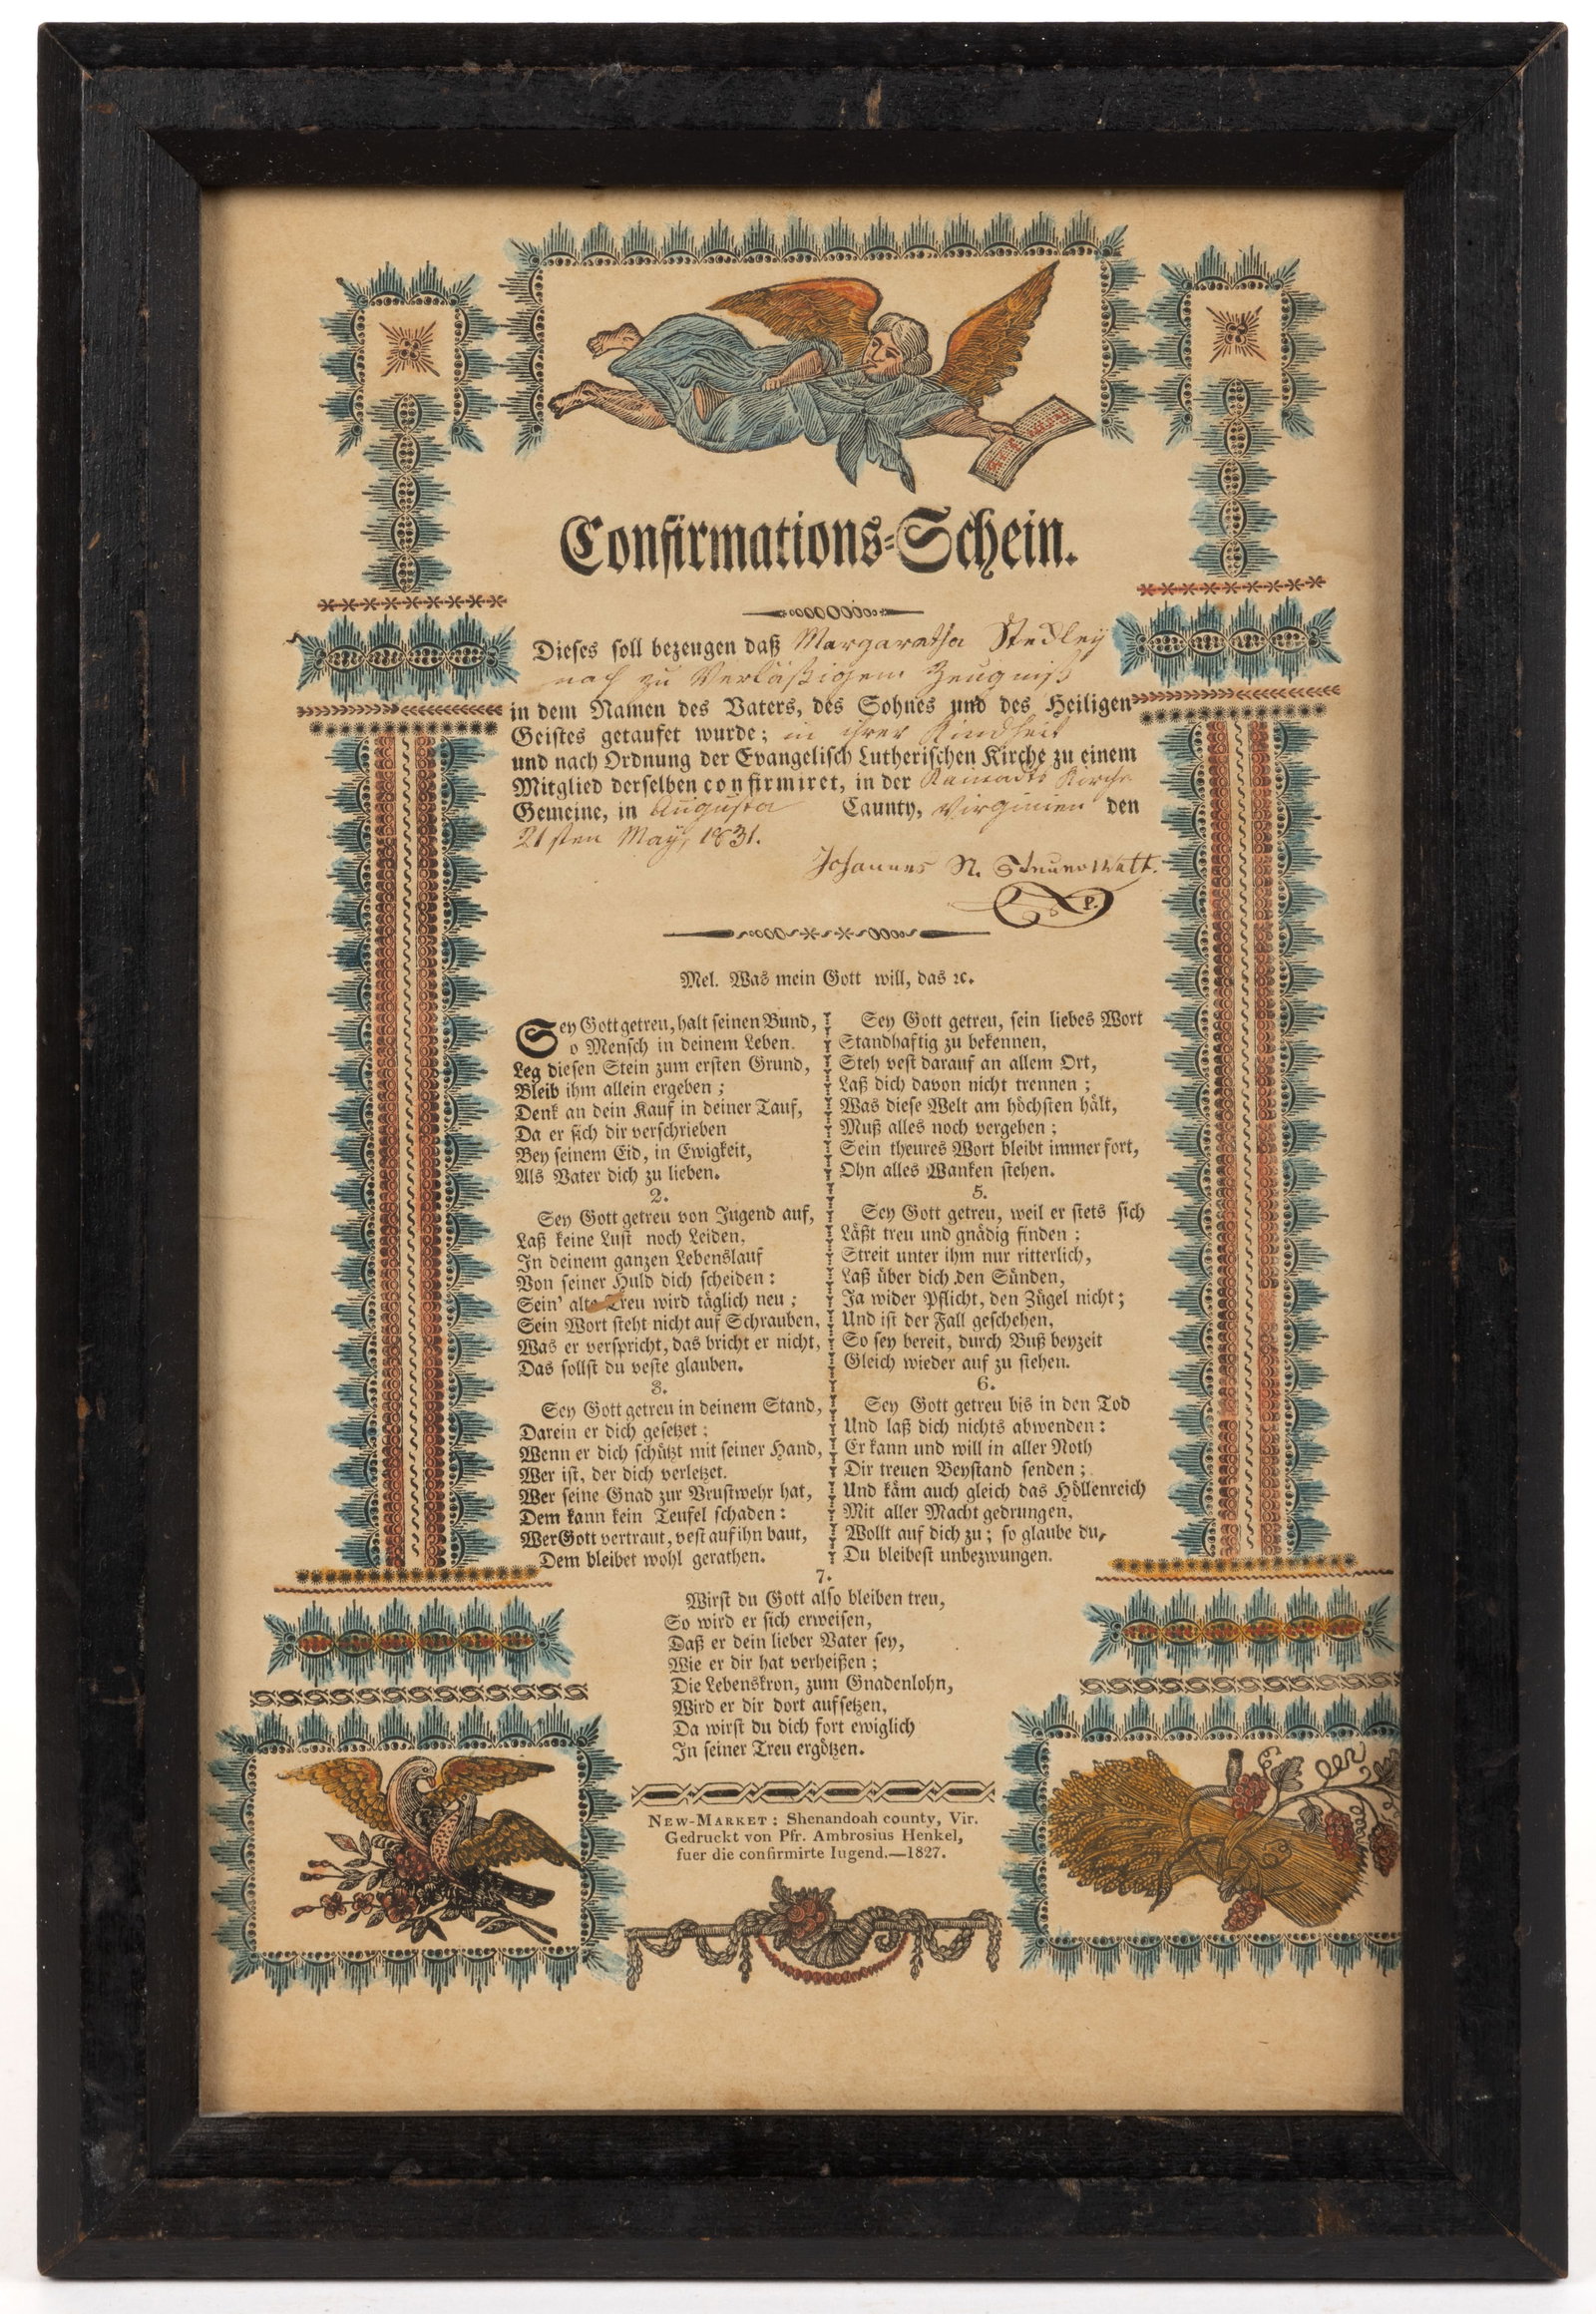 Confirmations-Schein.
Dieses soll bezeugen daß Margaratha Stedley
nach zu Verläßigem Zeugniß
in dem Namen des Vaters, des Sohnes und des Heiligen
Geistes getaufet wurde; in ihrer Kindheit
und nach Ordnung der Evangelisch Lutherischen Kirche zu einem
Mitglied derselben confirmiret, in der Kirche
Gemeine, in Augusta Caunty, Virginien den
21sten May, 1831.
Johannes N.
P.
Mel. Was mein Gott will, das ꝛc.
Sey Gott getreu, halt seinen Bund,
o Mensch in deinem Leben.
Leg diesen Stein zum ersten Grund,
Bleib ihm allein ergeben;
Denk an dein Kauf in deiner Tauf,
Da er sich dir verschrieben
Bey seinem Eid, in Ewigkeit,
Als Vater dich zu lieben.
2.
Sey Gott getreu von Jugend auf,
Laß keine Lust noch Leiden,
In deinem ganzen Lebenslauf
Von seiner Huld dich scheiden:
Sein' alte Treu wird täglich neu;
Sein Wort steht nicht auf Schrauben,
Was er verspricht, das bricht er nicht,
Das sollst du veste glauben.
3.
Sey Gott getreu in deinem Stand,
Darein er dich gesetzet:
Wenn er dich schützt mit seiner Hand,
Wer ist, der dich verletzet.
Wer seine Gnad zur Brustwehr hat,
Dem kann kein Teufel schaden:
Wer Gott vertraut, vest auf ihn baut,
Dem bleibet wohl gerathen.
Sey Gott getreu, sein liebes Wort
Standhaftig zu bekennen,
Steh vest darauf an allem Ort,
Laß dich davon nicht trennen;
Was diese Welt am höchsten hält,
Muß alles noch vergehen;
Sein theures Wort bleibt immer fort,
Ohn alles Wanken stehen.
5.
Sey Gott getreu, weil er stets sich
Läßt treu und gnädig finden:
Streit unter ihm nur ritterlich,
Laß über dich den Sünden,
Ja wider Pflicht, den Zügel nicht;
Und ist der Fall geschehen,
So sey bereit, durch Buß beyzeit
Gleich wieder auf zu stehen.
6.
Sey Gott getreu bis in den Tod
Und laß dich nichts abwenden:
Er kann und will in aller Noth
Dir treuen Beystand senden;
Und käm auch gleich das Höllenreich
Mit aller Macht gedrungen,
Wollt auf dich zu; so glaube du,
Du bleibest unbezwungen.
7.
Wirst du Gott also bleiben treu,
So wird er sich erweisen,
Daß er dein lieber Vater sey,
Wie er dir hat verheißen;
Die Lebenskron, zum Gnadenlohn,
Wird er dir dort aufsetzen,
Da wirst du dich fort ewiglich
In seiner Treu ergötzen.
New-Market: Shenandoah county, Vir.
Gedruckt von Pfr. Ambrosius Henkel,
fuer die confirmirte Iugend.—1827.